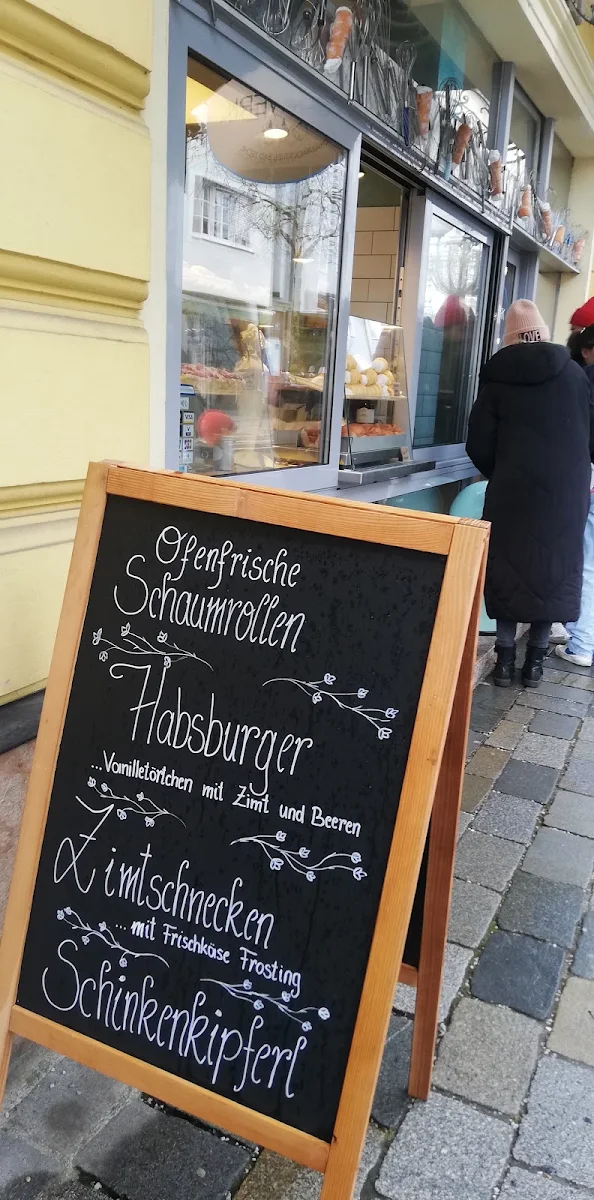 Ofenfrische
Schaumrollen
Habsburger
...Vanilletörtchen mit Zimt und Beeren
Zimtschnecken
...mit Frischkäse Frosting
Schinkenkipferl
LOVE
VISA